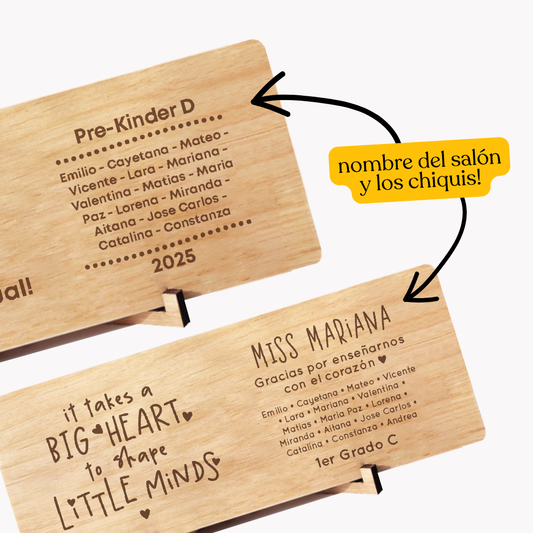 Pre-Kinder D
Emilio - Cayetana - Mateo -
Vicente - Lara - Mariana -
Valentina - Matias - Maria
Paz - Lorena - Miranda -
Aitana - Jose Carlos -
Catalina - Constanza
2025
nombre del salón
y los chiquis!
it takes a
BIG HEART
to shape
LiTTLE MiNDS
MISS MARiANA
Gracias por enseñarnos
con el corazón ♥
Emilio • Cayetana • Mateo • Vicente
• Lara • Mariana • Valentina •
Matias • Maria Paz • Lorena •
Miranda • Aitana • Jose Carlos •
Catalina • Constanza • Andrea
1er Grado C